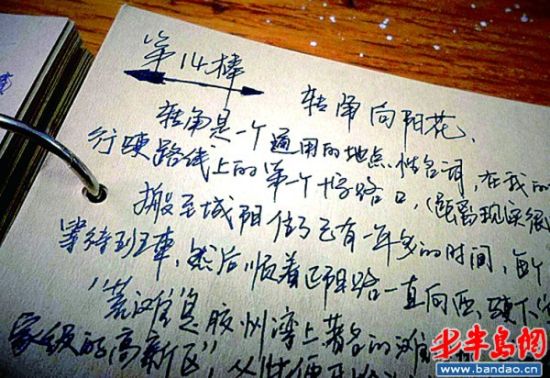 第14棒
转角向阳花、
转角是一个通用的地点性名词，在我的
行 路线上的第一个十字路口，
搬至城阳 已有一年多的时间，每个
等待班车，然后顺着正阳路一直向西，
"荒滩 胶州湾上著名的滩
家级的高新区"，从
半岛网
www.bandao.cn